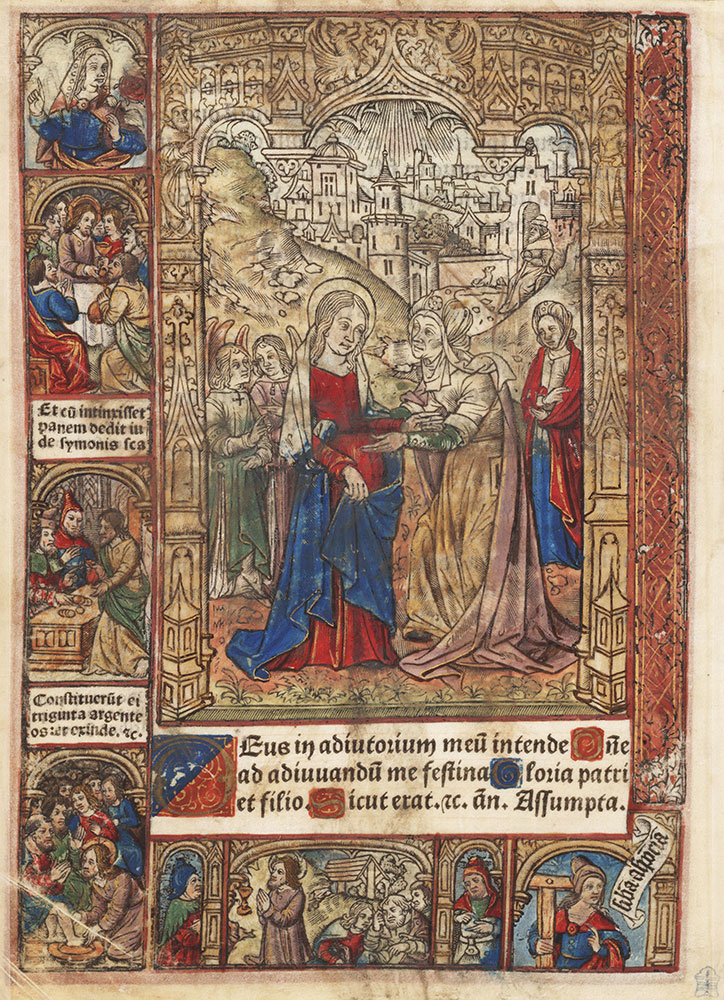 Et cū intinxisset
panem dedit iu
de symonis sca
Constituerūt ei
triginta argente
os: et exinde. ⁊c.
Deus in adiutorium meū intende Dñe
ad adiuvandū me festina Gloria patri
et filio. Sicut erat. ⁊c. añ. Assumpta.